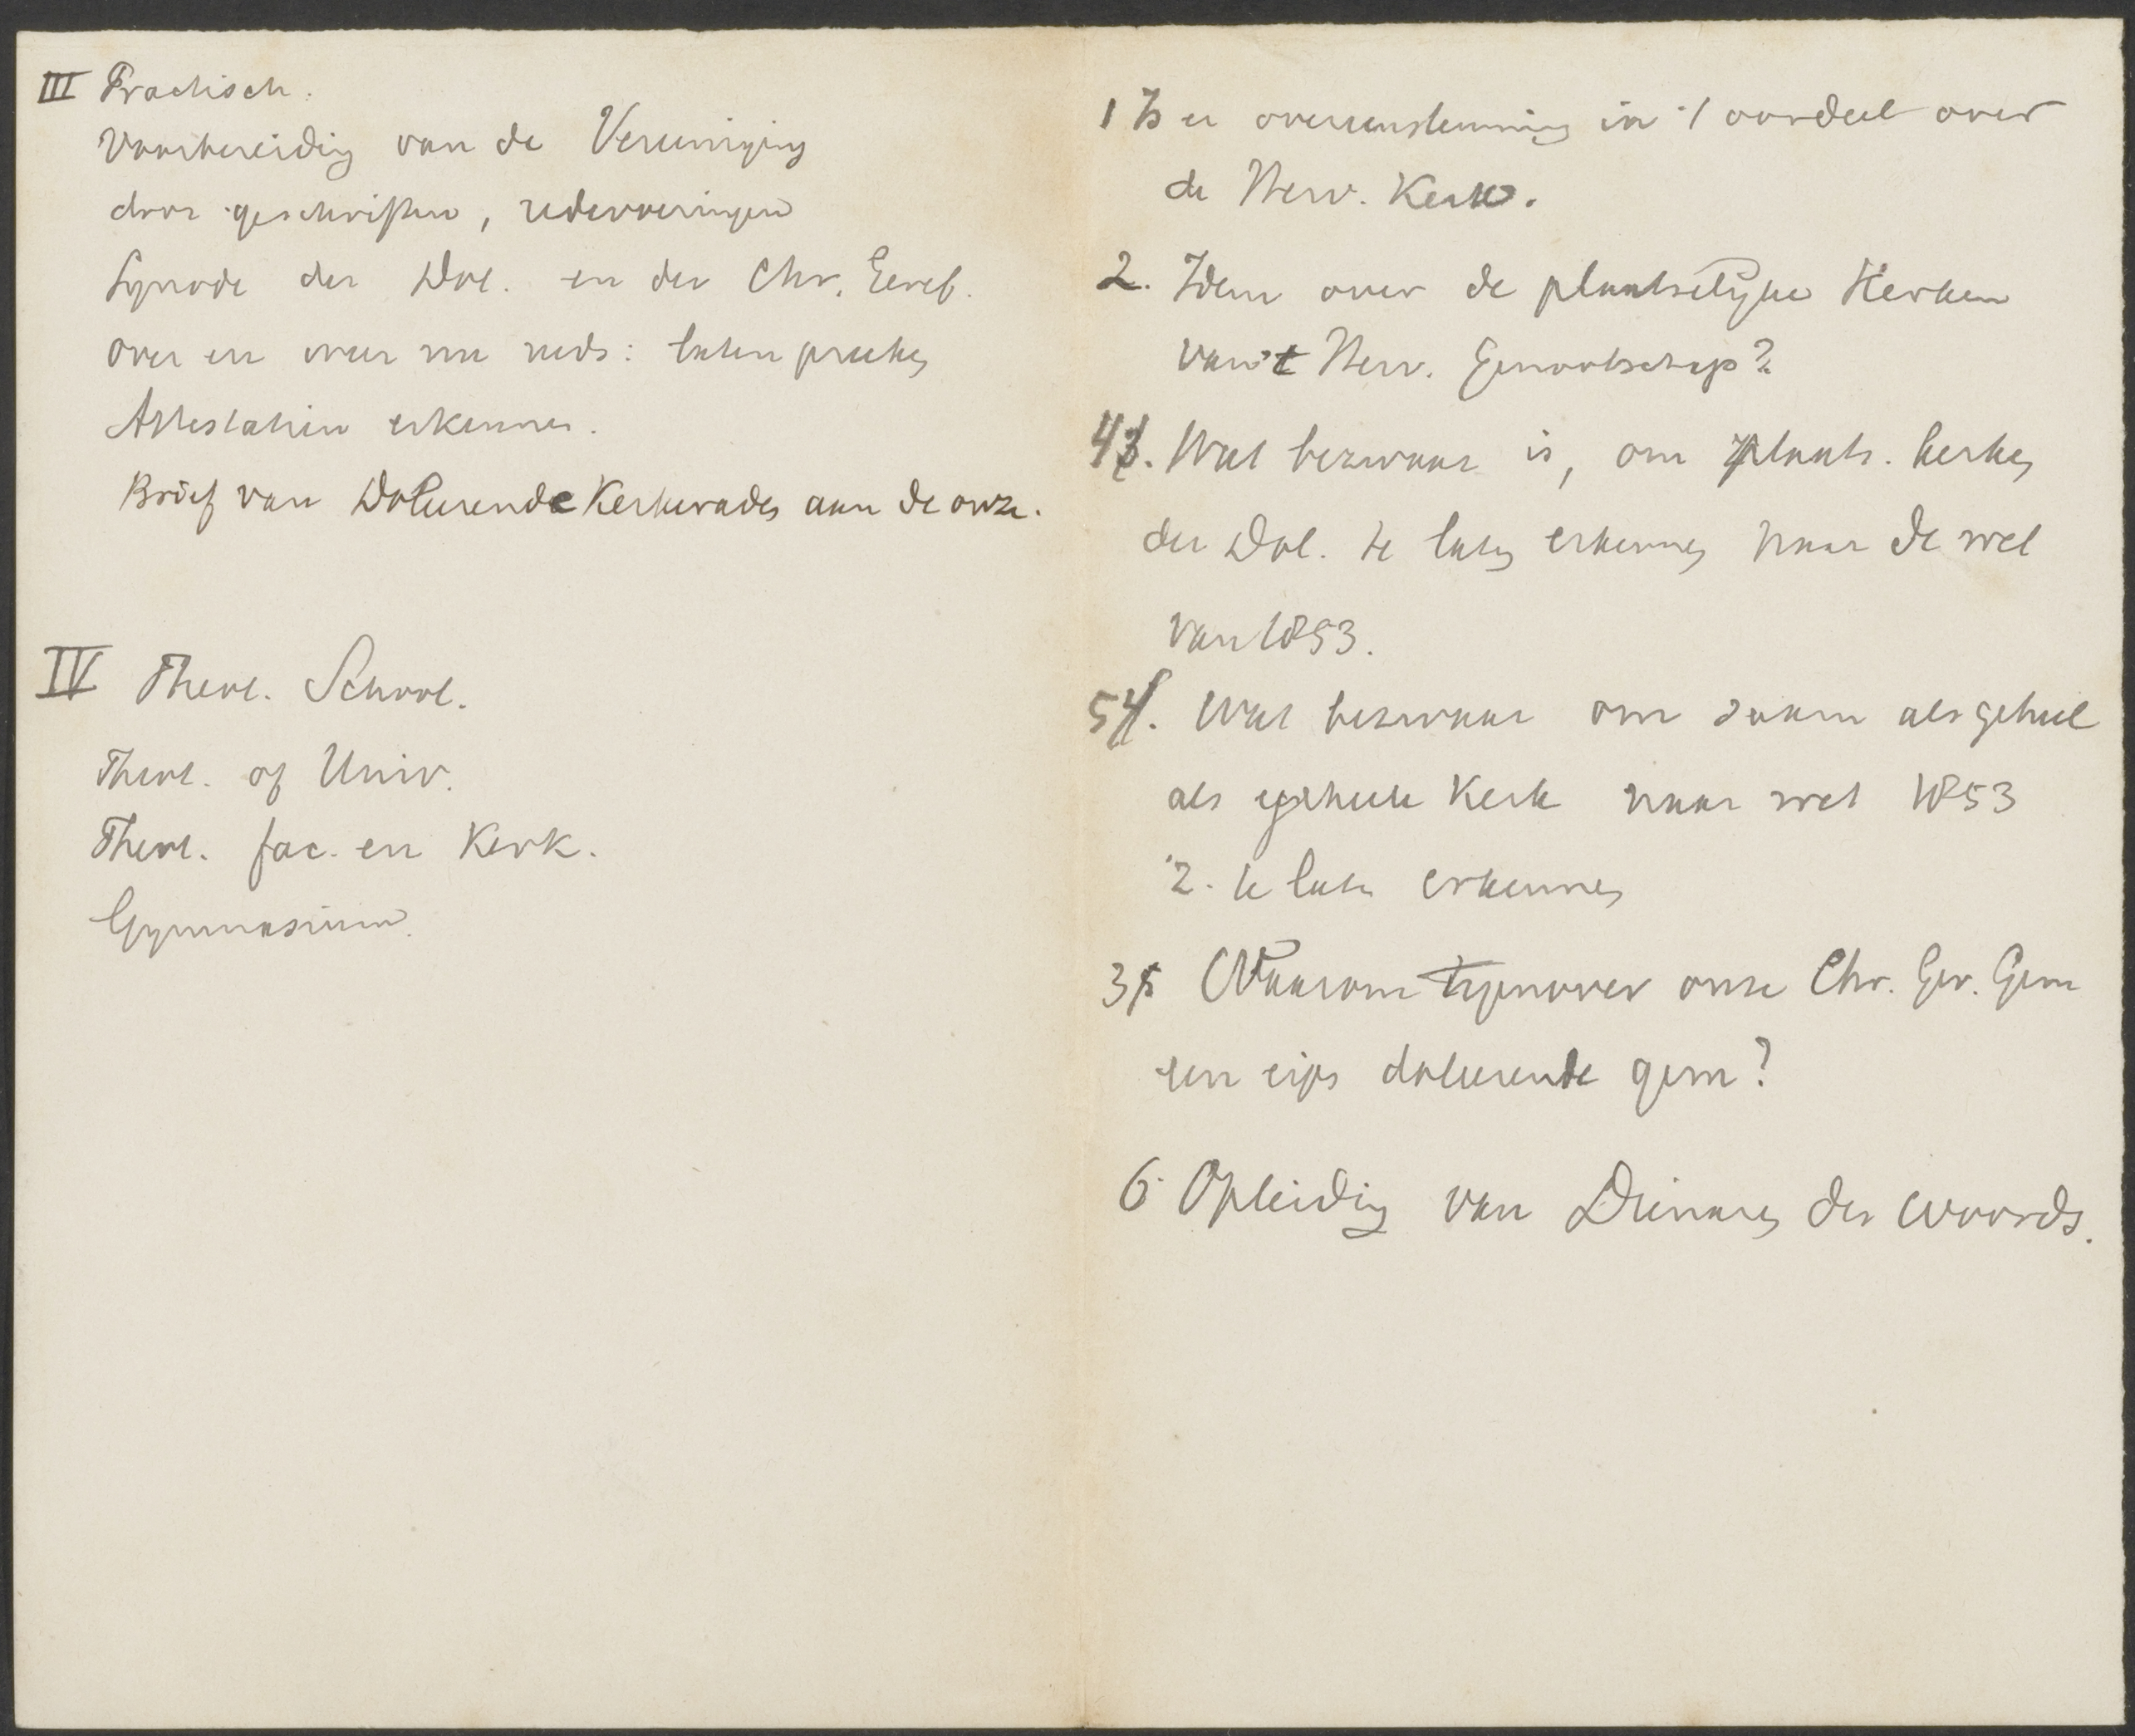 III Practisch.
Voorbereiding van de Vereeniging
door geschriften, redevoeringen
Synode der Dol. en der Chr. Geref.
over en weer nu reeds: laten preeken
Attestatien erkennen.
Brief van Doleerende Kerkeraden aan de onze.
IV Theol. School.
Theol. of Univ.
Theol. fac. en Kerk.
Gymnasium.
1 Is er overeenstemming in 't oordeel over
de Herv. Kerk.
2. Idem over de plaatselijke Kerken
van 't Herv. Genootschap?
4 3. Wat bezwaar is, om plaats. kerken
der Dol. te laten erkennen naar de wet
van 1853.
5 4. Wat bezwaar om saam als geheel
als geheele Kerk naar wet 1853
te laten erkennen
3 5 Waarom tegenover onze Chr. Ger. Gem
een eigen doleerende gem?
6 Opleiding van Dienaren des Woords.